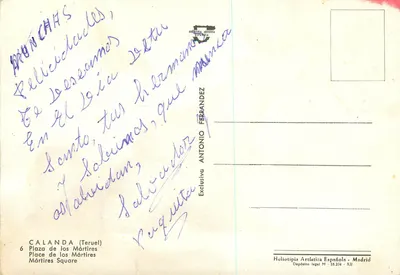 MUNCHAS
Felicidades,
Te Deseamos
En El Dia De tu
Santo, tus hermanos
Y Sobrinos, que nunca
olvidan,
Salvador
Paquita
Exclusiva ANTONIO FERRANDEZ
CALANDA (Teruel)
6 Plaza de los Mártires
Place de los Mártires
Mártires Square
Huecograbado Artístico Española - Madrid